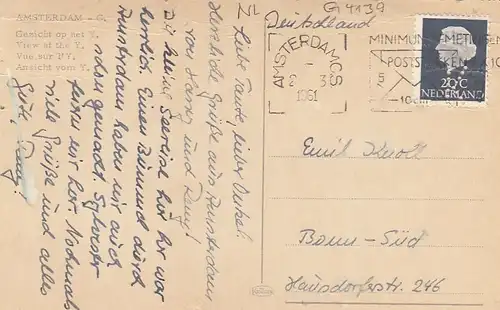 AMSTERDAM - C.
Gezicht op het Y.
View at the Y.
Vue sur l'Y.
Ansicht vom Y.
NL
G 4139
Deutschland
AMSTERDAM CS
2 - 3
1961
MINIMUM-METINGEN
POSTSTUKKEN
5
NEDERLAND
20 C
Liebe Tante, lieber Onkel!
Herzliche Grüße aus Amsterdam
von Harry und Romy!
Die kleine Seereise hier her war
herrlich. Einen Bummel durch
Amsterdam haben wir auch
schon gemacht. Sylvester
feiern wir hier. Nochmals
viele Grüße und alles
Gute, Romy!
Emil Knoll
Bonn-Süd
Hausdorfferstr. 246